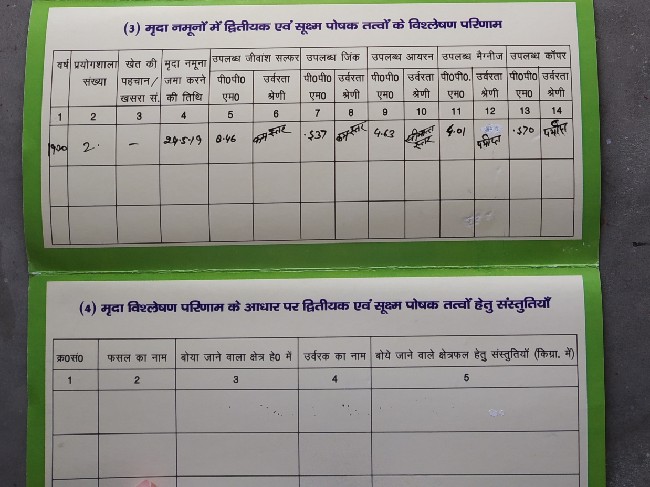 (3) मृदा नमूनों में द्वितीयक एवं सूक्ष्म पोषक तत्वों के विश्लेषण परिणाम
वर्ष प्रयोगशाला संख्या खेत की पहचान/ खसरा सं. मृदा नमूना जमा करने की तिथि उपलब्ध जीवांश सल्फर उपलब्ध जिंक उपलब्ध आयरन उपलब्ध मैग्नीज उपलब्ध कॉपर
पी0पी0 एम0 उर्वरता श्रेणी पी0पी0 एम0 उर्वरता श्रेणी पी0पी0 एम0 उर्वरता श्रेणी पी0पी0. एम0 उर्वरता श्रेणी पी0पी0 एम0 उर्वरता श्रेणी
1 2 3 4 5 6 7 8 9 10 11 12 13 14
2. - 24-5-19 8.46 कम स्तर .537 कम स्तर 4.63 स्तर 4.01 पर्याप्त .570 पर्याप्त
(4) मृदा विश्लेषण परिणाम के आधार पर द्वितीयक एवं सूक्ष्म पोषक तत्वों हेतु संस्तुतियाँ
क्र0सं0 फसल का नाम बोया जाने वाला क्षेत्र हे0 में उर्वरक का नाम बोये जाने वाले क्षेत्रफल हेतु संस्तुतियाँ (किग्रा. में)
1 2 3 4 5